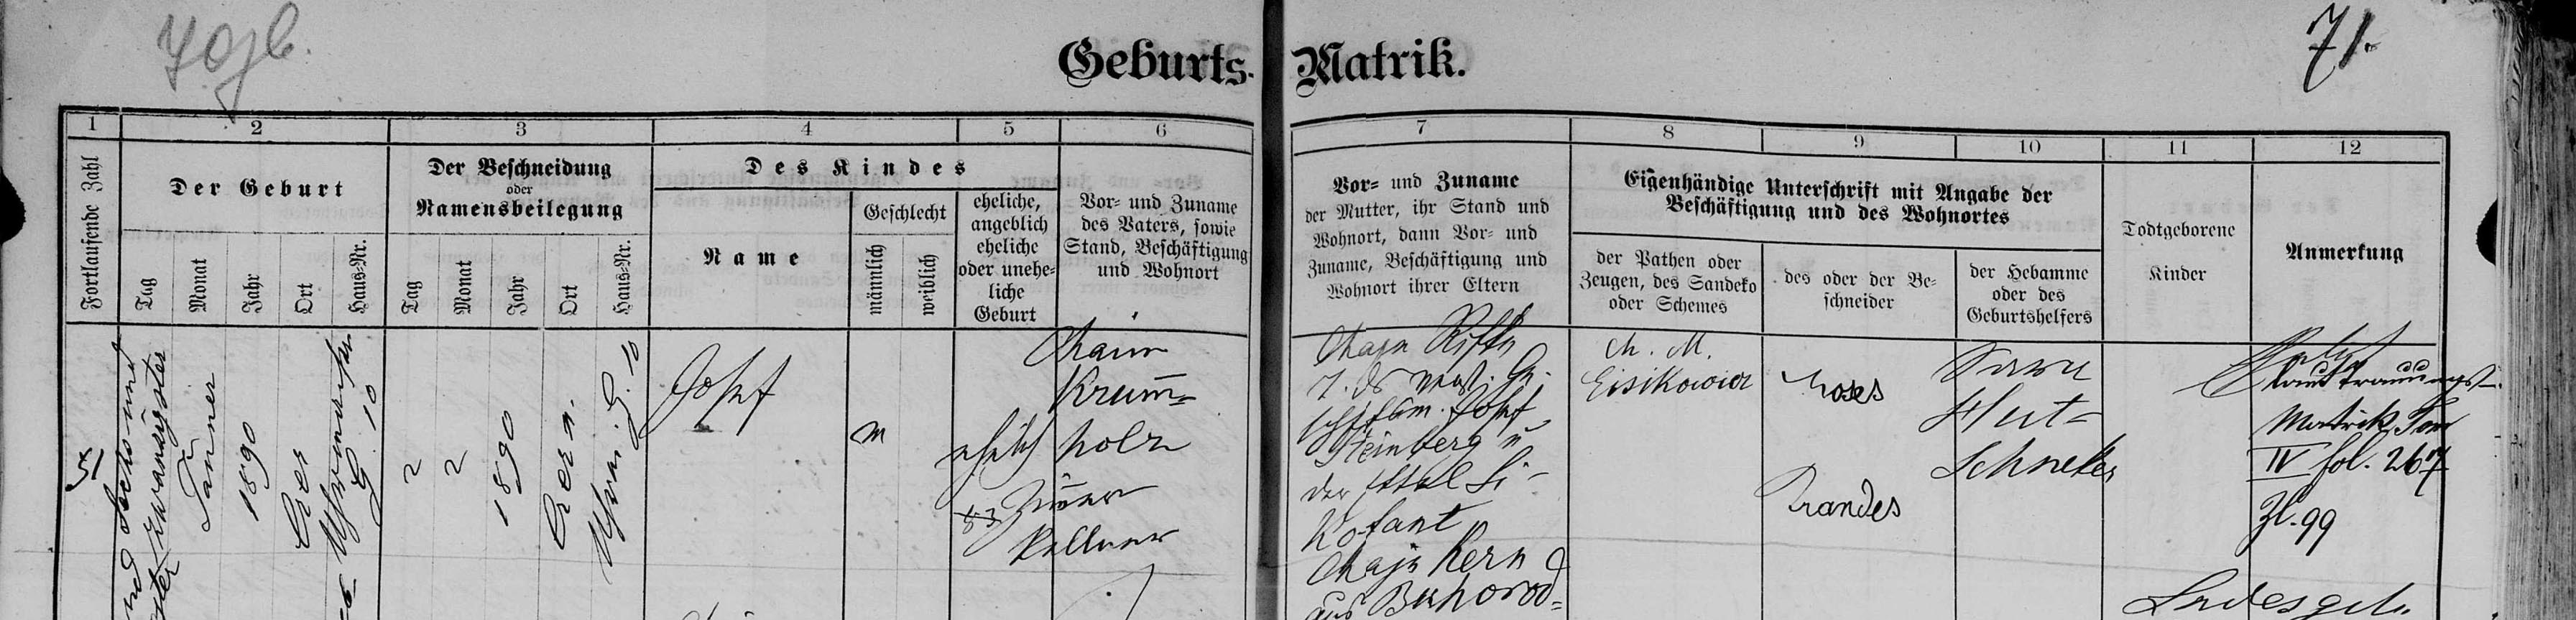 71.
Geburts- Matrik.
1 2 3 4 5 6 7 8 9 10 11 12
Fortlaufende Zahl
Der Geburt
Tag
Monat
Jahr
Ort
Haus-Nr.
Der Beschneidung
oder
Namensbeilegung
Tag
Monat
Jahr
Ort
Haus-Nr.
Des Kindes
Name
Geschlecht
männlich
weiblich
eheliche,
angeblich
eheliche
oder unehe-
liche
Geburt
Vor- und Zuname
des Vaters, sowie
Stand, Beschäftigung
und Wohnort
Vor- und Zuname
der Mutter, ihr Stand und
Wohnort, dann Vor- und
Zuname, Beschäftigung und
Wohnort ihrer Eltern
Eigenhändige Unterschrift mit Angabe der
Beschäftigung und des Wohnortes
der Pathen oder
Zeugen, des Sandeko
oder Schemes
des oder der Be-
schneider
der Hebamme
oder des
Geburtshelfers
Todtgeborene
Kinder
Anmerkung
51
Sechs und
zwanzigster
Jänner
1890
G. 10
2
2
1890
G. 10
Josef
m
ehelich
Chaim
Krum=
holz
Kellner
Chaja Rifke
Josef
Steinberg u
der Ettel
Chaje Kern
aus Bohorod=
Ch. M.
Eisikowicz
Moses
Brandes
Sara
Hut-
Schneker
laut Trauungs-
Matrik Tom
IV fol. 267
Zl. 99